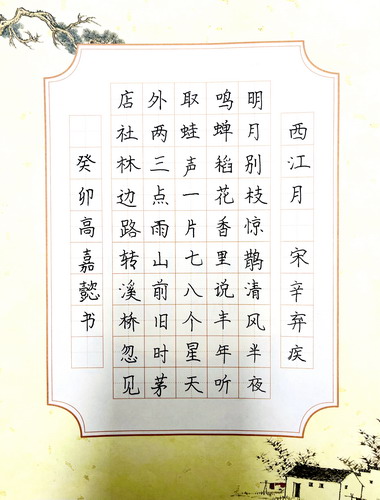 西江月 宋辛弃疾
明月别枝惊鹊清风半夜
鸣蝉稻花香里说丰年听
取蛙声一片七八个星天
外两三点雨山前旧时茅
店社林边路转溪桥忽见
癸卯高嘉懿书